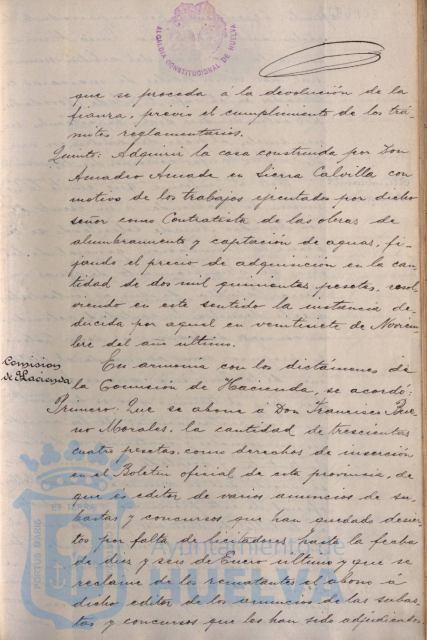 ALCALDIA CONSTITUCIONAL DE HUELVA
que se proceda á la devolución de la
fianza, previo el cumplimiento de los trá-
mites reglamentarios.
Quinto: Adquirir la casa construida por Don
Amadeo Amade en Sierra Calvilla con
motivo de los trabajos ejecutados por dicho
señor como Contratista de las obras de
alumbramiento y captación de aguas, fi-
jando el precio de adquisición en la can-
tidad de dos mil quinientas pesetas, resol-
viendo en este sentido la instancia de-
ducida por aquel en veintisiete de Noviem-
bre del año último.
Comision
de Hacienda
En armonía con los dictámenes de
la Comisión de Hacienda, se acordó:
Primero: Que se abone á Don Francisco
Morales, la cantidad de trescientas
cuatro pesetas, como derechos de inserción
en el Boletin oficial de esta provincia, de
que es editor de varios anuncios de su-
bastas y concursos que han quedado desier-
tos por falta de licitadores hasta la fecha
de diez y seis de Enero último y que se
reclame de los rematantes el abono á
dicho editor de los anuncios de las subas-
tas y concursos que les han sido adjudicados
PORTUS MARIS
Ayuntamiento de
HUELVA